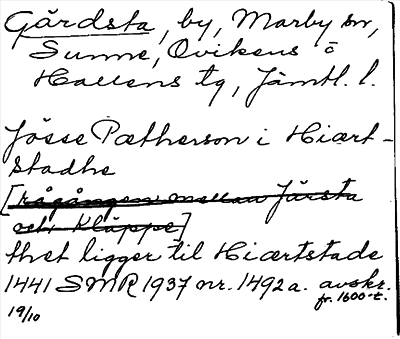 Gärdsta, by, Marby sn,
Sunne, Ovikens o
Hallens tg, Jämtl. l.
Jösse Pætherson i Hiært-
stadhe
[rågången mellan Järsta
och Kläppe]
thet ligger til Hiærtstade
1441 SMR 1937 nr. 1492a. avskr.
fr. 1600-t.
19/10